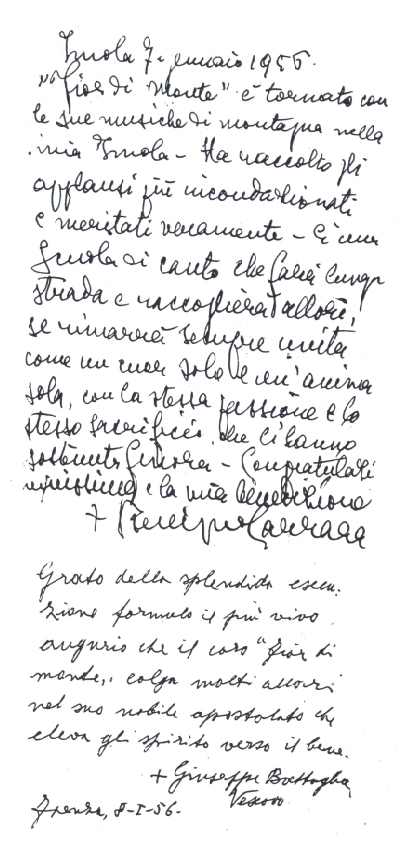 Imola 7. gennaio 1956.
"Fior di Monte" è tornato con
le sue musiche di montagna nella
mia Imola - Ha raccolto gli
applausi più incondizionati
e meritati veramente - È una
Scuola di canto che farà lunga
strada e raccoglierà allori,
se rimarrà sempre unita
come un cuor solo e un'anima
sola, con la stessa passione e lo
stesso sacrificio che li hanno
sostenuti finora - Congratulazi
e la mia benedizione
+ Carrara
Grato della splendida esecu-
zione formulo il più vivo
augurio che il coro "Fior di
monte", colga molti allori
nel suo nobile apostolato che
eleva gli spirito verso il bene.
+ Giuseppe Battaglia
Vescovo
Faenza, 8-I-56.